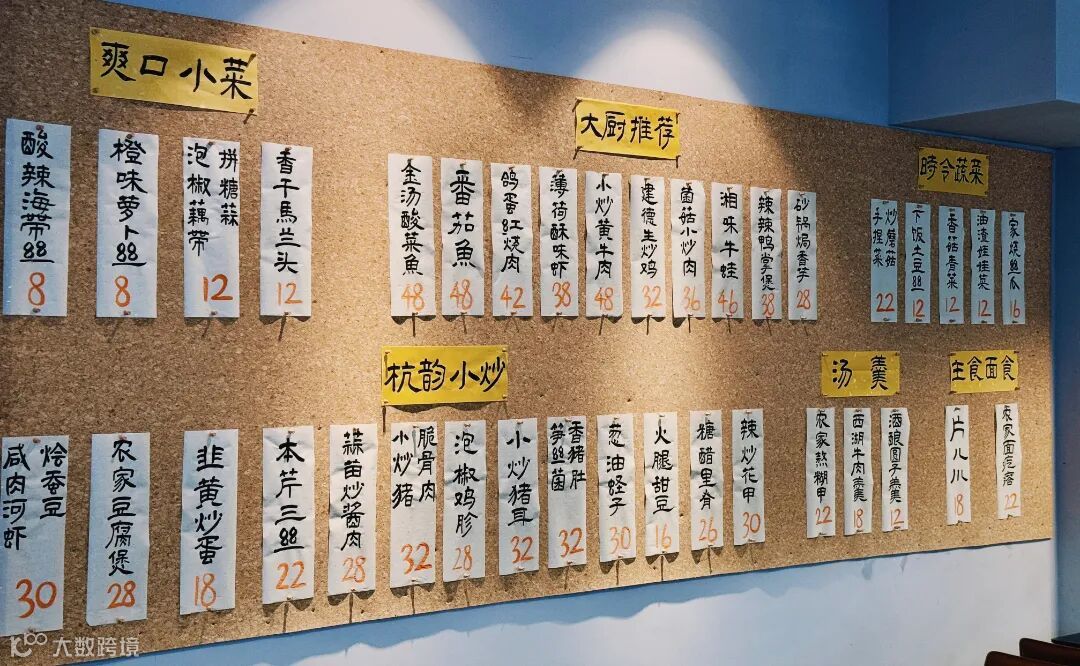 爽口小菜
酸辣海带丝
8
橙味萝卜丝
8
拼糖蒜
泡椒藕带
12
香干馬兰头
12
大厨推荐
金汤酸菜魚
48
番茄魚
48
鸽蛋红烧肉
42
薄荷酥味虾
38
小炒黄牛肉
48
建德生炒鸡
32
菌菇小炒肉
36
湘味牛蛙
46
辣辣鸭掌煲
38
砂锅焗香芋
28
時令蔬菜
炒蘑菇
手捏菜
22
下饭土豆丝
12
香菇青菜
12
酒渣娃娃菜
12
家烧丝瓜
16
杭韵小炒
烩蚕豆
咸肉河虾
30
农家豆腐煲
28
韭黄炒蛋
18
本芹三丝
22
蒜苗炒酱肉
28
脆骨肉
小炒猪
32
泡椒鸡胗
28
小炒猪耳
32
香猪肚
笋丝菌
32
葱油蛏子
30
火腿甜豆
16
糖醋里脊
26
辣炒花甲
30
汤羹
农家熬糊甲
22
西湖牛肉羹
18
酒酿圆子羹
12
主食面食
片儿川
18
农家面疙瘩
22
大数跨境